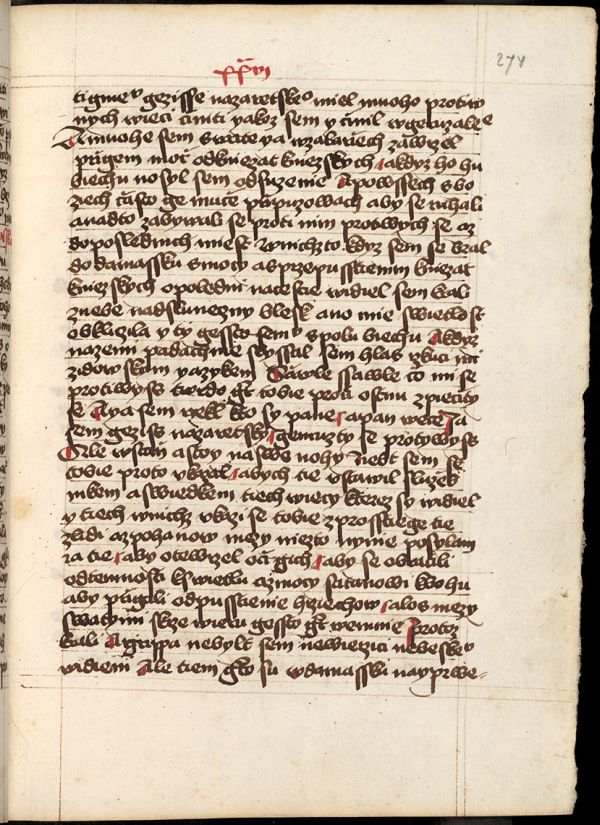 xxvi
277
ti gmeu gezisse nazaretskeo miel mnoho protiw
nych wieci ciniti yakoz sem y cinil wgeruzalee
A mnohe sem swate ya wzalarzich zawrzel
prigem moc odkniezat kniezskych a kdyz ho hu
biechu nosyl sem odsuzenie A powssech sbo
ziech casto ge muce pripuzowach aby se ruhali
a nadto zabywali se proti nim protiwych se az
doposlednich miest Wnichzto kdyz sem se bral
do damassku smocy a sprzepusstienim kniezat
kniezskych opoledni naceste widiel sem krali
znebe nadsluneczny blesk ano mie swietlost
obkliczila y ty gessto semnu spolu biechu A kdyz
nazemi padachme slyssal sem hlas rzkuci mi
zidowskym yazykem Sawle ssawle co mi se
protiwyss twrdo gt tobie proti ostnu zpieciti
se A ya sem wekl kto sy pane a pan wece Ja
sem geziss nazaretsky gemuzty se protywyss
Ale wstan a stoy na swe nohy nebt sem se
tobie proto ukazal abych tie ustawil sluzeb
nikem a swiedkem tiech wiecy kterez sy widiel
y tiech wnichz ukazi se tobie zprosstiege tie
zlidi a zpohanow mezy niezto ynine posylam
ia tie aby otewrzel oci gich aby se obratili
od temnosti k swietlu a zmocy satanowi k bohu
aby prigali odpusstienie hrziechow a los mezy
swatymi skrze wieru gessto gt wemnie Protoz
krali Agrippa nebylt sem newierzici nebeskeu
widieni Ale tiem gto su w damassku nayprwe-